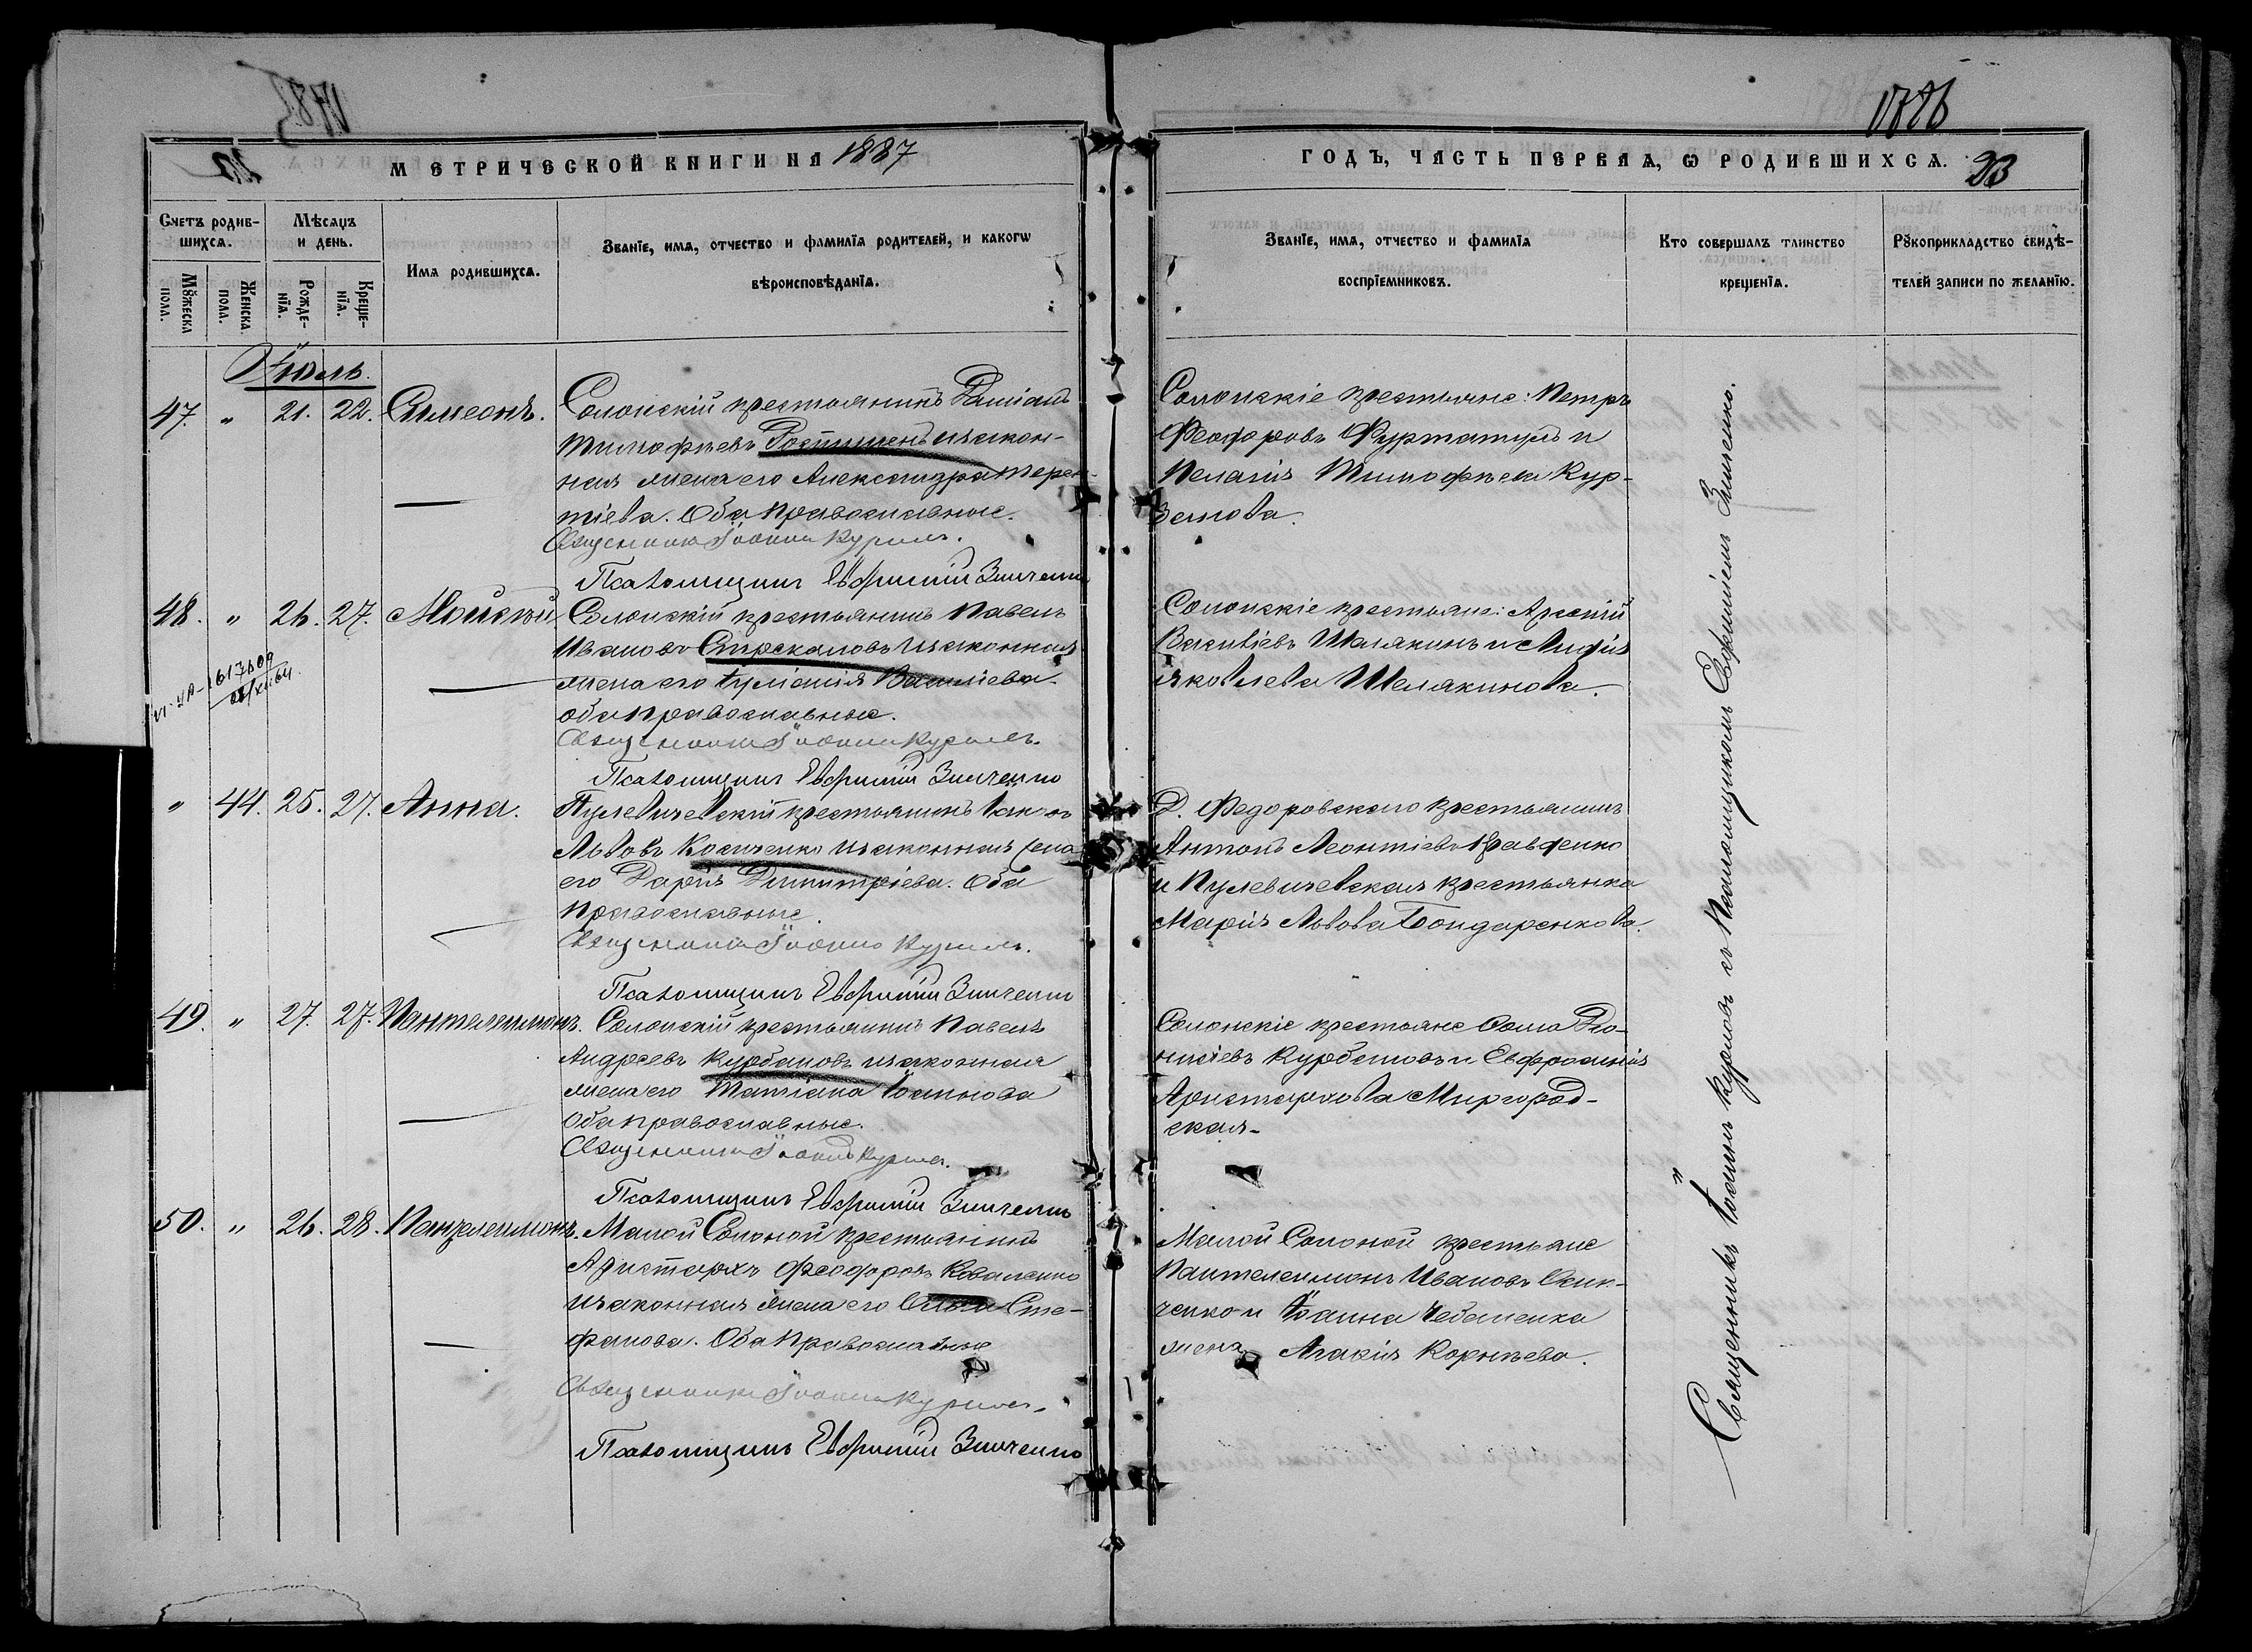 1786
МЕТРИЧЕСКОЙ КНИГИ НА 1887
ГОДЪ, ЧАСТЬ ПЕРВАЯ, Ѡ РОДИВШИХСЯ. 23
Счетъ родив-
шихся.
Мѣсяцъ
и день.
Мꙋжеска
пола.
Женска
пола.
Рожде-
нїя.
Креще-
нїя.
Имя родившихся.
Званїе, имя, отчество и фамилїя родителей, и какогѡ
вѣроисповѣданїя.
Званїе, имя, отчество и фамилїя
воспрїемниковъ.
Кто совершалъ таинство
крещенїя.
Рꙋкоприкладство свидѣ-
телей записи по желанїю.
Іюль.
47. " 21. 22. Симеонъ.
Солонскій крестьянинъ Даміанъ
Тимофѣевъ и закон-
ная жена его Александра Терен-
тіева. Оба православные.
Священникъ Іоаннъ Курилъ.
Псаломщикъ Евфимій Зинченко
Солонскіе крестьяне: Петръ
Феодоровъ и
Пелагія Тимофѣева Кур-
48. " 26. 27. Моисей
Солонскій крестьянинъ Павелъ
Ивановъ Стрекаловъ и законная
жена его Іуліанія Василіева.
оба православные.
Священникъ Іоаннъ Курилъ.
Псаломщикъ Евфимій Зинченко
Солонскіе крестьяне: Арсеній
Шелякинъ и Лидія
Яковлева Шелякинова.
" 44. 25. 27. Анна.
Пулевичевскій крестьянинъ Іаковъ
Львовъ Косиченко и законная жена
его Дарія Димитріева. Оба
православные.
Священникъ Іоаннъ Курилъ.
Псаломщикъ Евфимій Зинченко
Д. Федоровскаго крестьянинъ
Антонъ Леонтіевъ Кравченко
и Пулевичевская крестьянка
Марія Львова Бондаренкова.
49. " 27. 27. Пантелеимонъ.
Солонскій крестьянинъ Павелъ
Андреевъ Курбановъ и законная
жена его Татіана Іоаннова
Оба православные.
Священникъ Іоаннъ Курилъ.
Псаломщикъ Евфимій Зинченко
Солонскіе крестьяне Ѳома Діо-
нисіевъ Курбановъ и Евфросинія
Аристархова Миргород-
ская.
50. " 26. 28. Пантелеимонъ.
Малой Солоной крестьянинъ
Аристархъ Феодоровъ Коваленко
и законная жена его Ольга Сте-
фанова. Оба православные
Священникъ Іоаннъ Курилъ.
Псаломщикъ Евфимій Зинченко
Малой Солоной крестьяне
Пантелеимонъ Ивановъ
и Іоанна Чебаненка
жена Агафія Корнѣева.
Священникъ Іоаннъ Куриловъ съ Псаломщикомъ Евфиміемъ Зинченко.